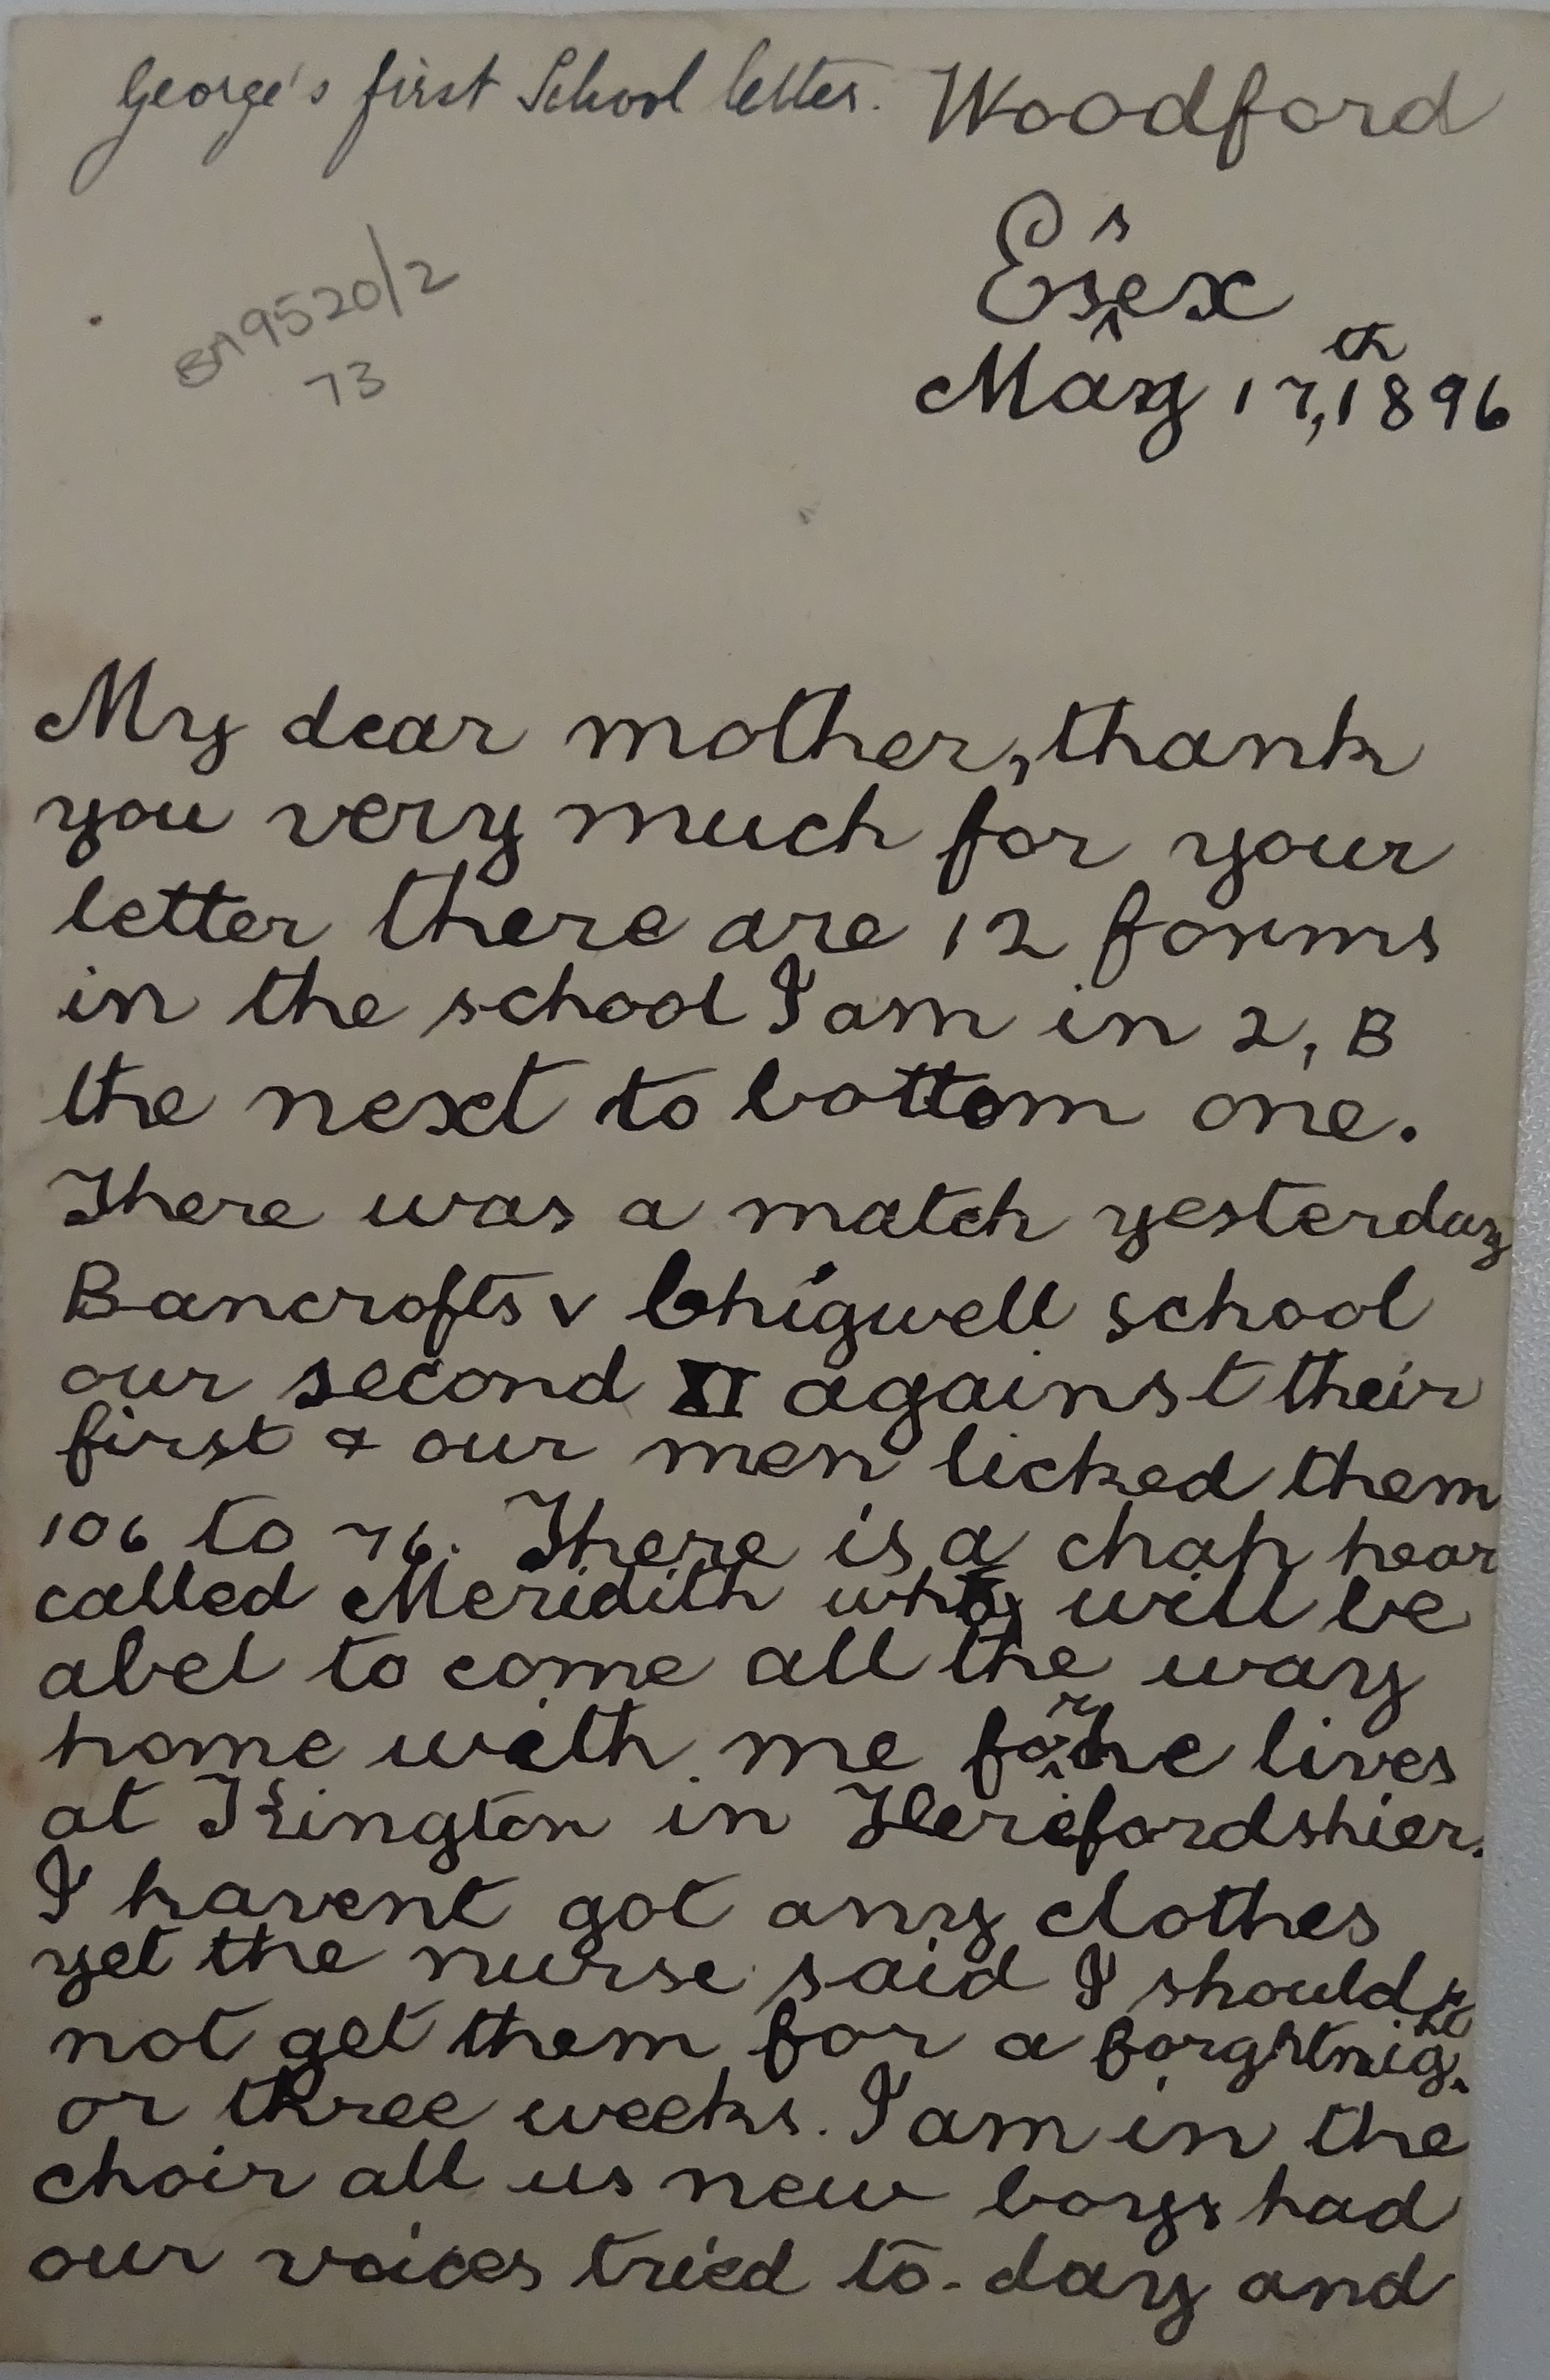 George's first School letter. Woodford
Essex
BM9520/2
73
May 17th, 1896
My dear mother, thank
you very much for your
letter there are 12 forms
in the school I am in 2, B
the next to bottom one.
There was a match yesterday
Bancrofts v Chigwell school
our second XI against their
first & our men licked them
106 to 76. There is a chap hear
called Meridith who will be
abel to come all the way
home with me for he lives
at Kington in Herefordshier.
I havent got any clothes
yet the nurse said I should
not get them for a
or three weeks. I am in the
choir all us new boys had
our voices tried to-day and